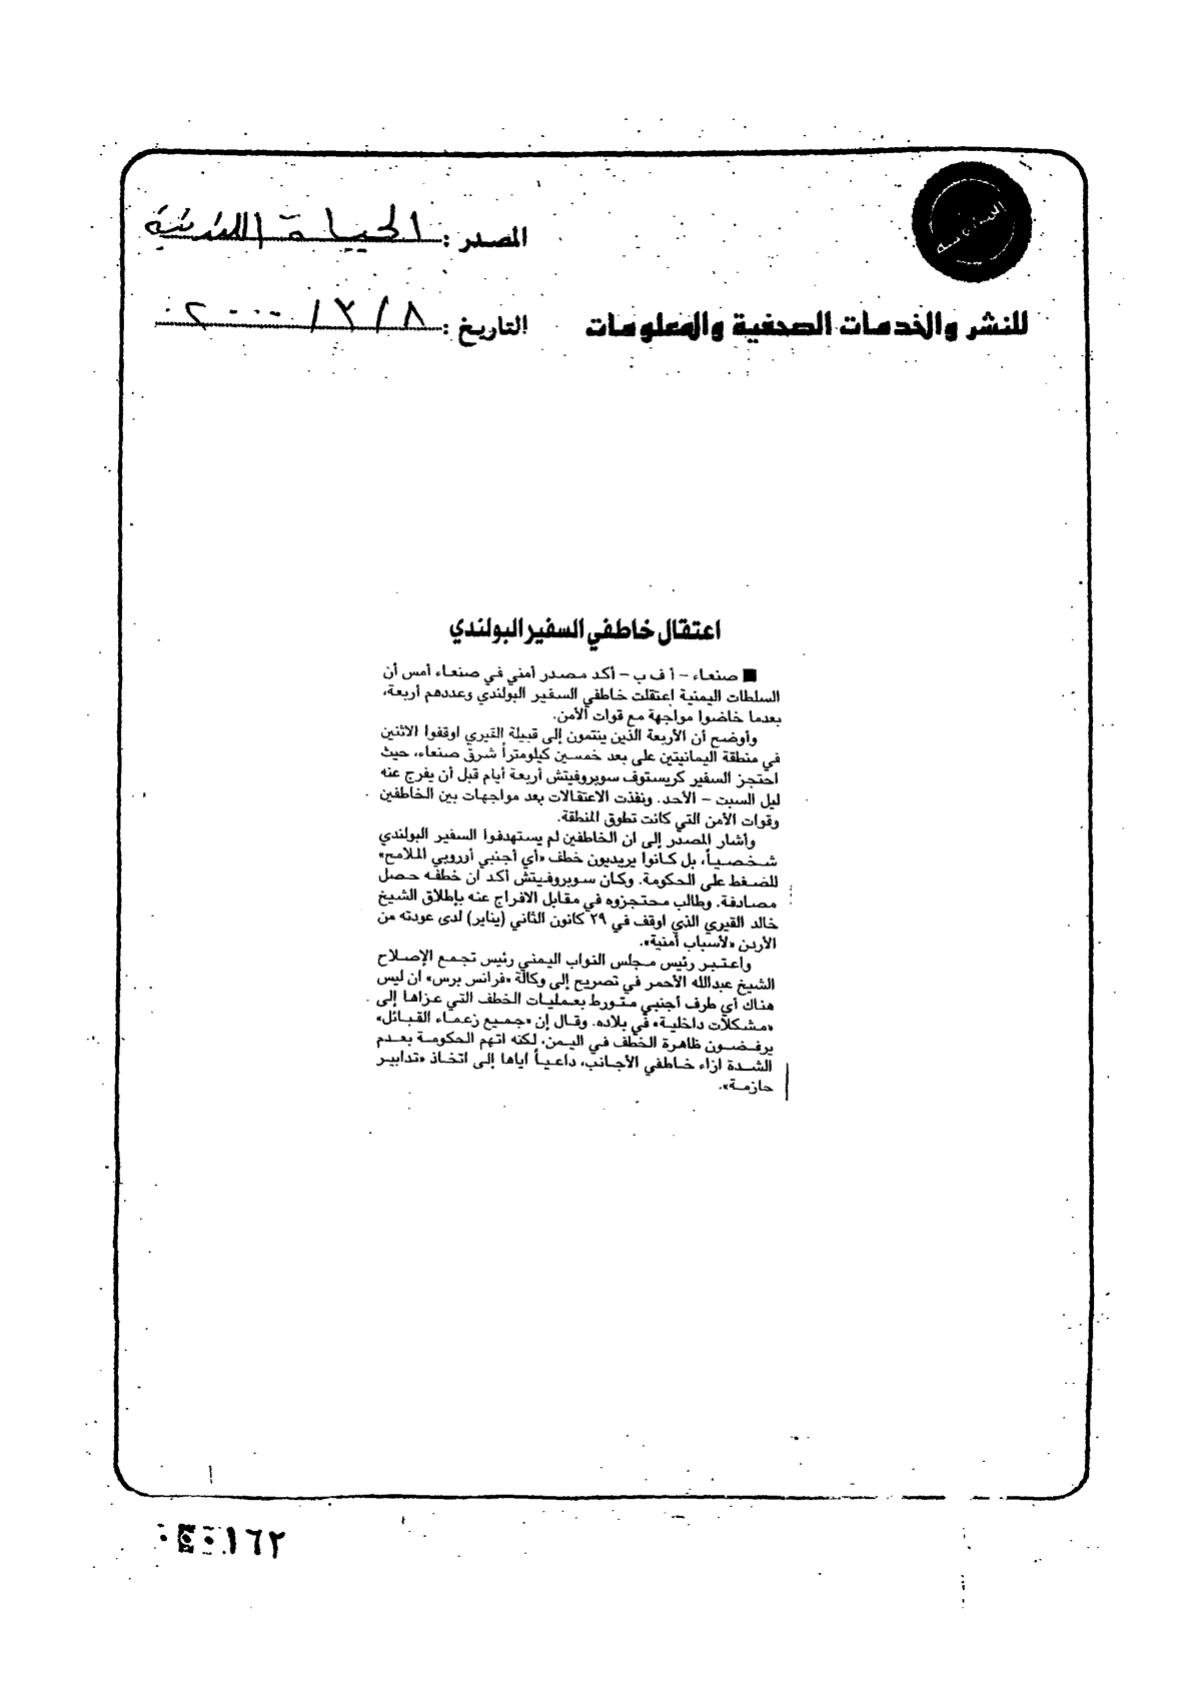 المصدر : الحياة اللندنية
للنشر والخدمات الصحفية والمعلومات
التاريخ : ٨ / ٣ / ٢٠٠٠
اعتقال خاطفي السفير البولندي
■ صنعاء - أ ف ب - أكد مصدر أمني في صنعاء أمس أن
السلطات اليمنية اعتقلت خاطفي السفير البولندي وعددهم أربعة،
بعدما خاضوا مواجهة مع قوات الأمن.
وأوضح أن الأربعة الذين ينتمون إلى قبيلة القيري اوقفوا الاثنين
في منطقة اليمانيتين على بعد خمسين كيلومتراً شرق صنعاء، حيث
احتجز السفير كريستوف سوبروفيتش أربعة أيام قبل أن يفرج عنه
ليل السبت - الأحد. ونفذت الاعتقالات بعد مواجهات بين الخاطفين
وقوات الأمن التي كانت تطوق المنطقة.
وأشار المصدر إلى ان الخاطفين لم يستهدفوا السفير البولندي
شخصياً، بل كانوا يريدون خطف «أي أجنبي أوروبي الملامح»
للضغط على الحكومة. وكان سوبروفيتش أكد ان خطفه حصل
مصادفة. وطالب محتجزوه في مقابل الافراج عنه بإطلاق الشيخ
خالد القيري الذي اوقف في ٢٩ كانون الثاني (يناير) لدى عودته من
الأردن «لأسباب أمنية».
واعتبر رئيس مجلس النواب اليمني رئيس تجمع الإصلاح
الشيخ عبدالله الأحمر في تصريح إلى وكالة «فرانس برس» ان ليس
هناك أي طرف أجنبي متورط بعمليات الخطف التي عزاها إلى
«مشكلات داخلية» في بلاده. وقال إن «جميع زعماء القبائل»
يرفضون ظاهرة الخطف في اليمن، لكنه اتهم الحكومة بعدم
الشدة ازاء خاطفي الأجانب، داعياً اياها إلى اتخاذ «تدابير
حازمة».